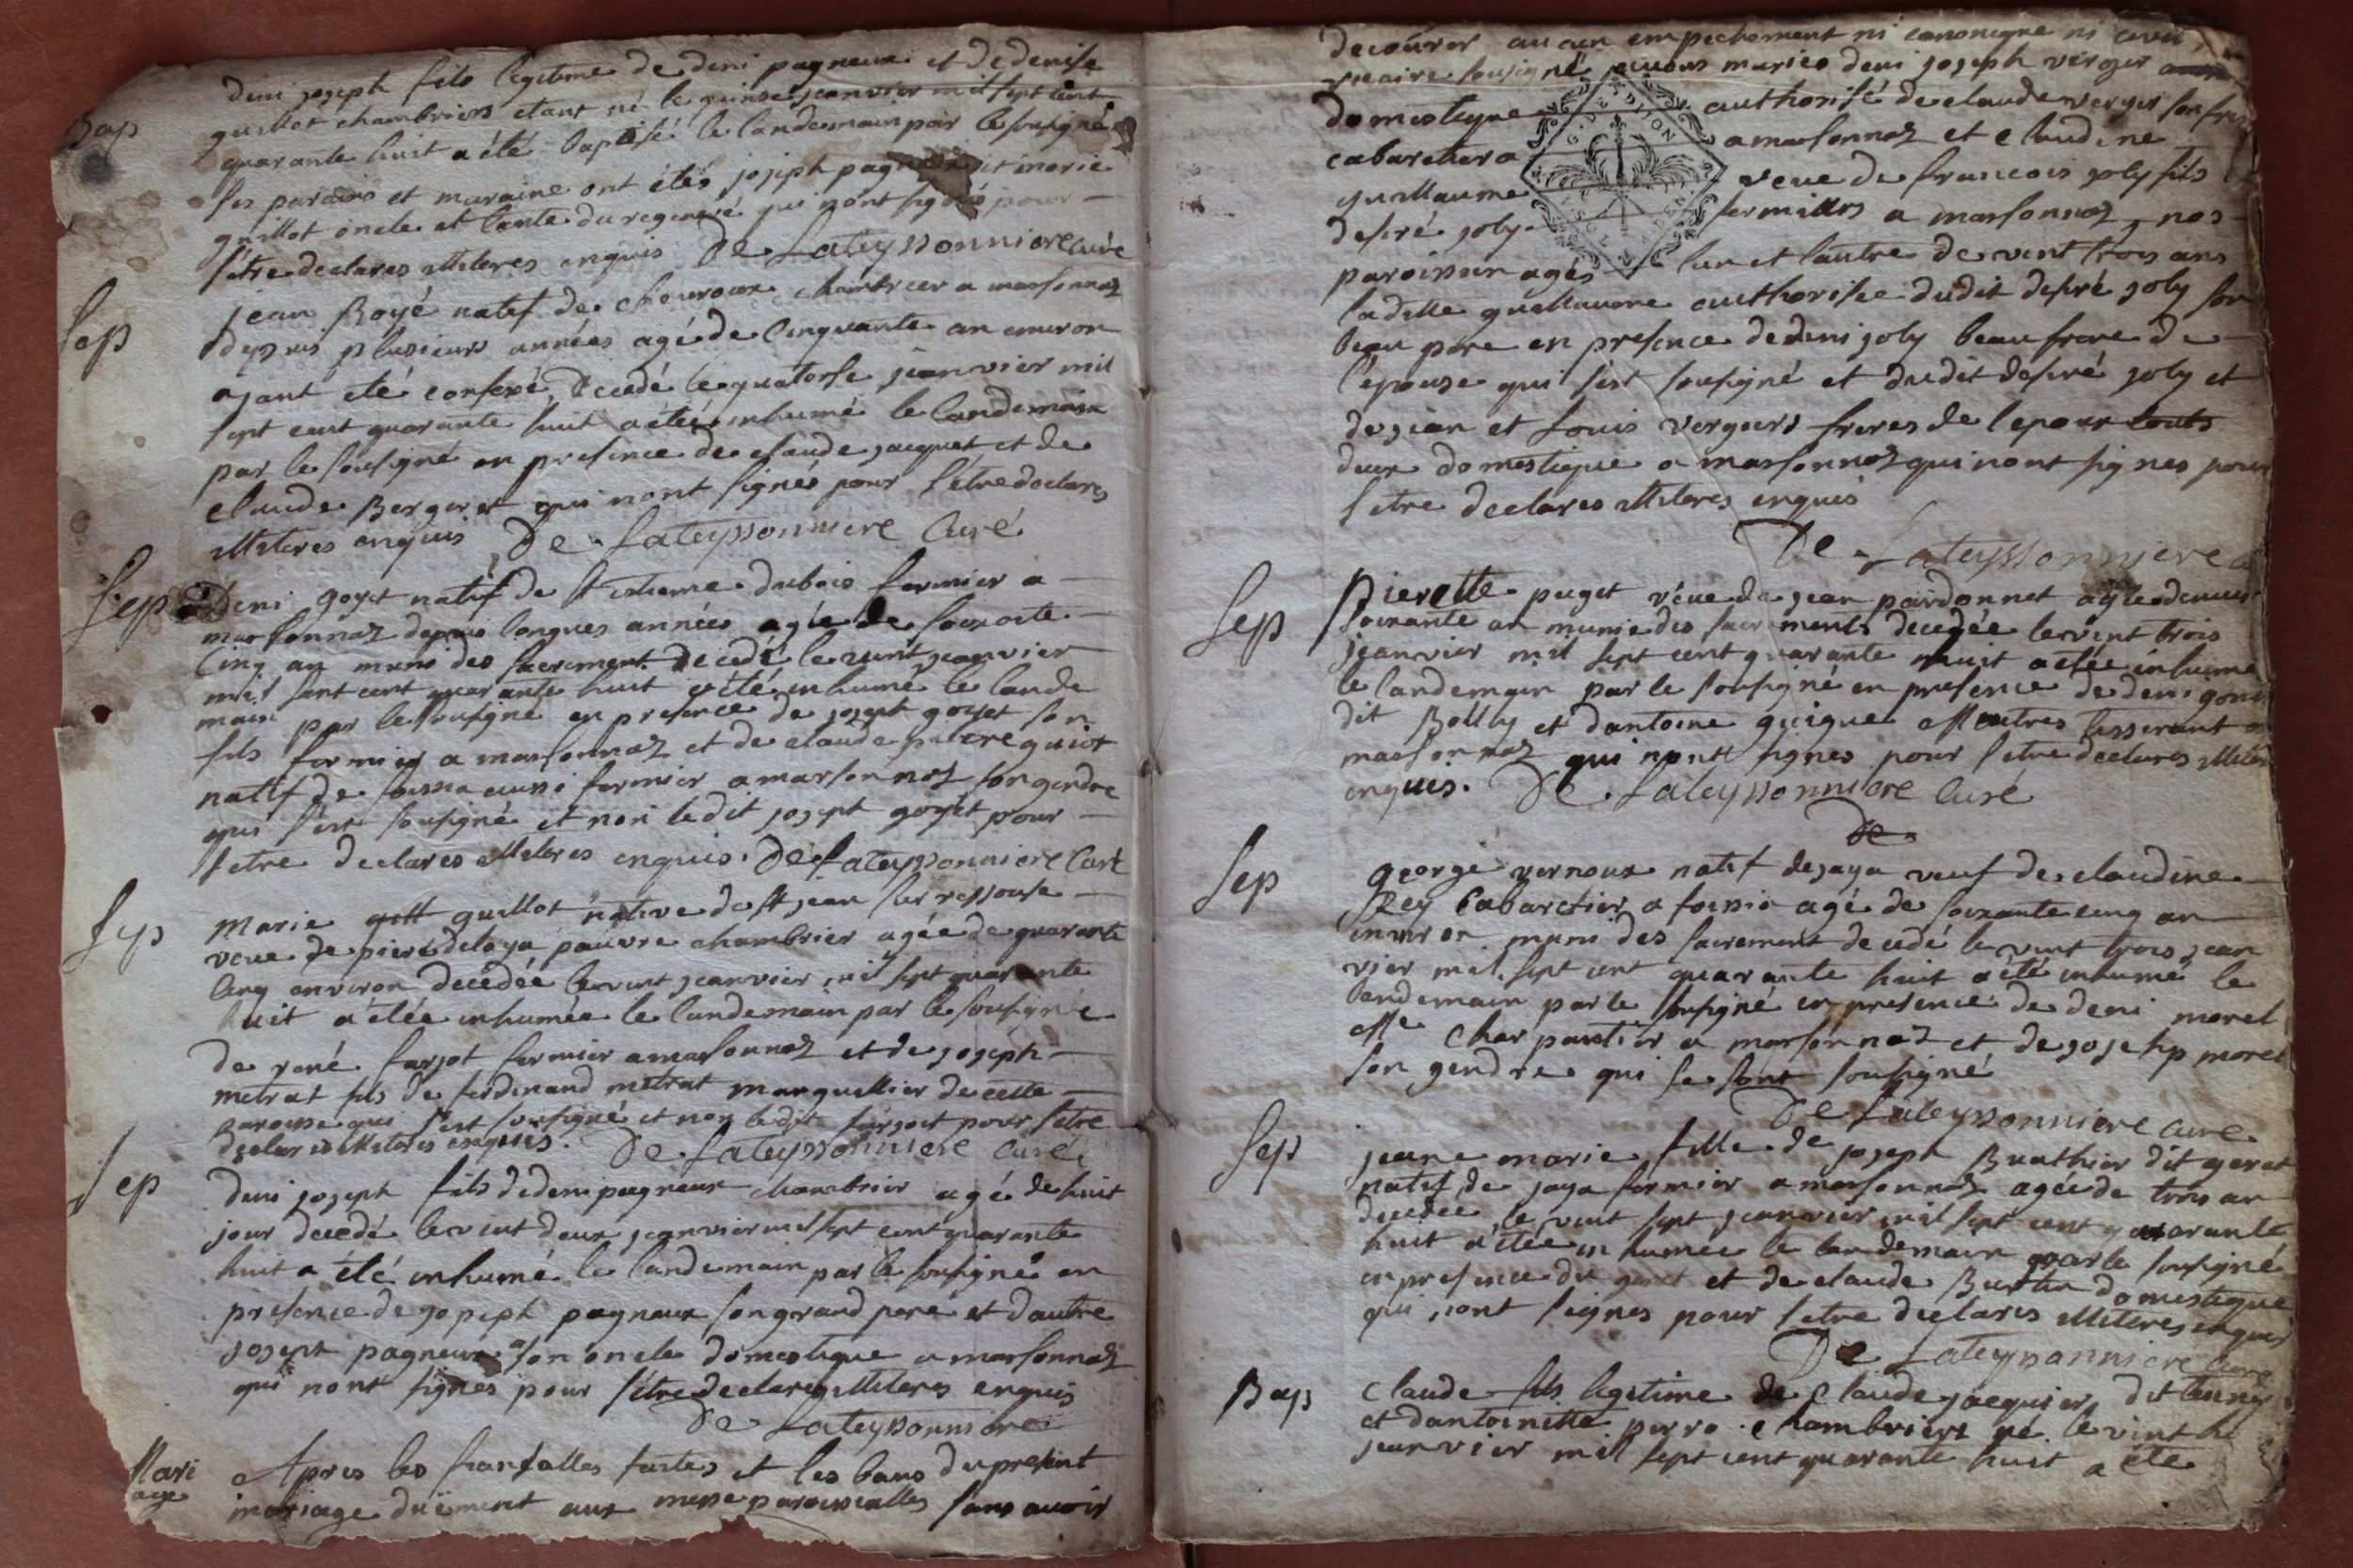 Bap
deni joseph fils legitime de deni pagneux et de denise
guillot chambriers etant né le quinse jeanvier mil sept cent
quarante huit a été baptisé le landemain par le sousigné
ses parain et maraine ont étés joseph pagneux et marie
guillot oncle et tante du regeneré qui nont signés pour
sêtre declares illiteres enquis De Lateyssonniere Curé
Sep
jean Boyé natif de chevroux chambrier a marsonnaz
depuis plusieurs années agé de cinquante an environ
ayant eté confessé, decedé le quatorse jeanvier mil
sept cent quarante huit a étés inhumé le landemain
par le sousigné en presence de claude jacquet et de
claude Bergeret qui nont signés pour sêtre declares
illiteres enquis De Lateyssonniere Curé
Sep
Deni goyet natif de st etienne dubois fermier a
marsonnaz depuis longues années agé de soixante
cinq an muni des sacrement decedé le vint jeanvier
mil sept cent quarante huit a été inhumé le lande
main par le sousigné en presence de joseph goyet son
fils fermier a marsonnaz et de claude
natif de aussi fermier a marsonnaz son gendre
qui sest sousigné et non ledit joseph goyet pour
setre declares illiteres enquis. De Lateyssonniere Curé
Sep
Marie guillot native de st jean sur ressouse
veue de piere deloya, pauvre chambrier agée de quarante
cinq environ decédée le vint jeanvier mil sept quarante
huit a étée inhumée le landemain par le sousigné
de rené farjot fermier a marsonnaz et de joseph
metrat fils de ferdinand metrat marguillier de cette
paroisse qui sest sousigné et non ledit farjot pour setre
declares illiteres enquis. De Lateyssonniere Curé
Sep
deni joseph fils de deni pagneux chambrier agé de huit
jour decedé le vint deux jeanvier mil sept cent quarante
huit a été inhumé le landemain par le sousigné en
presence de joseph pagneux son grand pere et dautre
joseph pagneux son oncle domestique a marsonnaz
qui nont signés pour sêtre declares illiteres enquis
De Lateyssonniere
Mari
age
Apres les fiansalles faites et les bans du present
mariage duëment aux messe paroissialles sans avoir
decouvrir aucun empechement ni canonique ni civil,
vicaire sousigné avons mariés deni joseph verger
domestique authorisé de claude verger son frere
cabaretier a a marsonnaz et claudine
guillaume veue de francois joly fils
desiré joly fermiers a marsonnaz, nos
paroissien agés lun et lautre de vint trois ans
ladille guillaume authorisée dudit desiré joly son
beau pere en presence de deni joly beau frere de
l'epouse qui sest sousigné et dudit desiré joly et
de jean et louis vergers freres de lepoux touts
deux domestique a marsonnaz qui nont signés pour
setre declares illiteres enquis
De Lateyssonniere
Sep
Pierette puget véue de jean pardonnet agée denviron
soixante an munie des sacrements decedée le vint trois
jeanvier mil sept cent quarante huit a étée inhumé
le landemain par le sousigné en presence de deni
dit Bolly et dantoine guigue tisserant
marsonnaz qui nont signes pour setre declares
enquis. De Lateyssonniere Curé
De
Sep
george vernoux natif de jaya veuf de claudine
Rey Cabaretier a foissia agé de soixante cinq an
environ muni des sacrement decedé le vint trois jean
vier mil sept cent quarante huit a été inhumé le
landemain par le sousigné en presence de deni morel
Me charpantier a marsonnaz et de josehp morel
son gendre qui se sont sousigné
De Lateyssonniere Curé
Sep
jeane marie fille de joseph Buathier dit geret
natif de jaya fermier a marsonnaz agée de trois an
decedée le vint sept jeanvier mil sept cent quarante
huit a étée inhumée le landemain par le sousigné
en presence du geret et de claude Burtin domestique
qui nont signes pour setre declares illiteres enquis
De Lateyssonniere Curé
Bap
Claude fils legitime de Claude jacquier dit
et dantoinette perro chambriers né le vint
jeanvier mil sept cent quarante huit a été